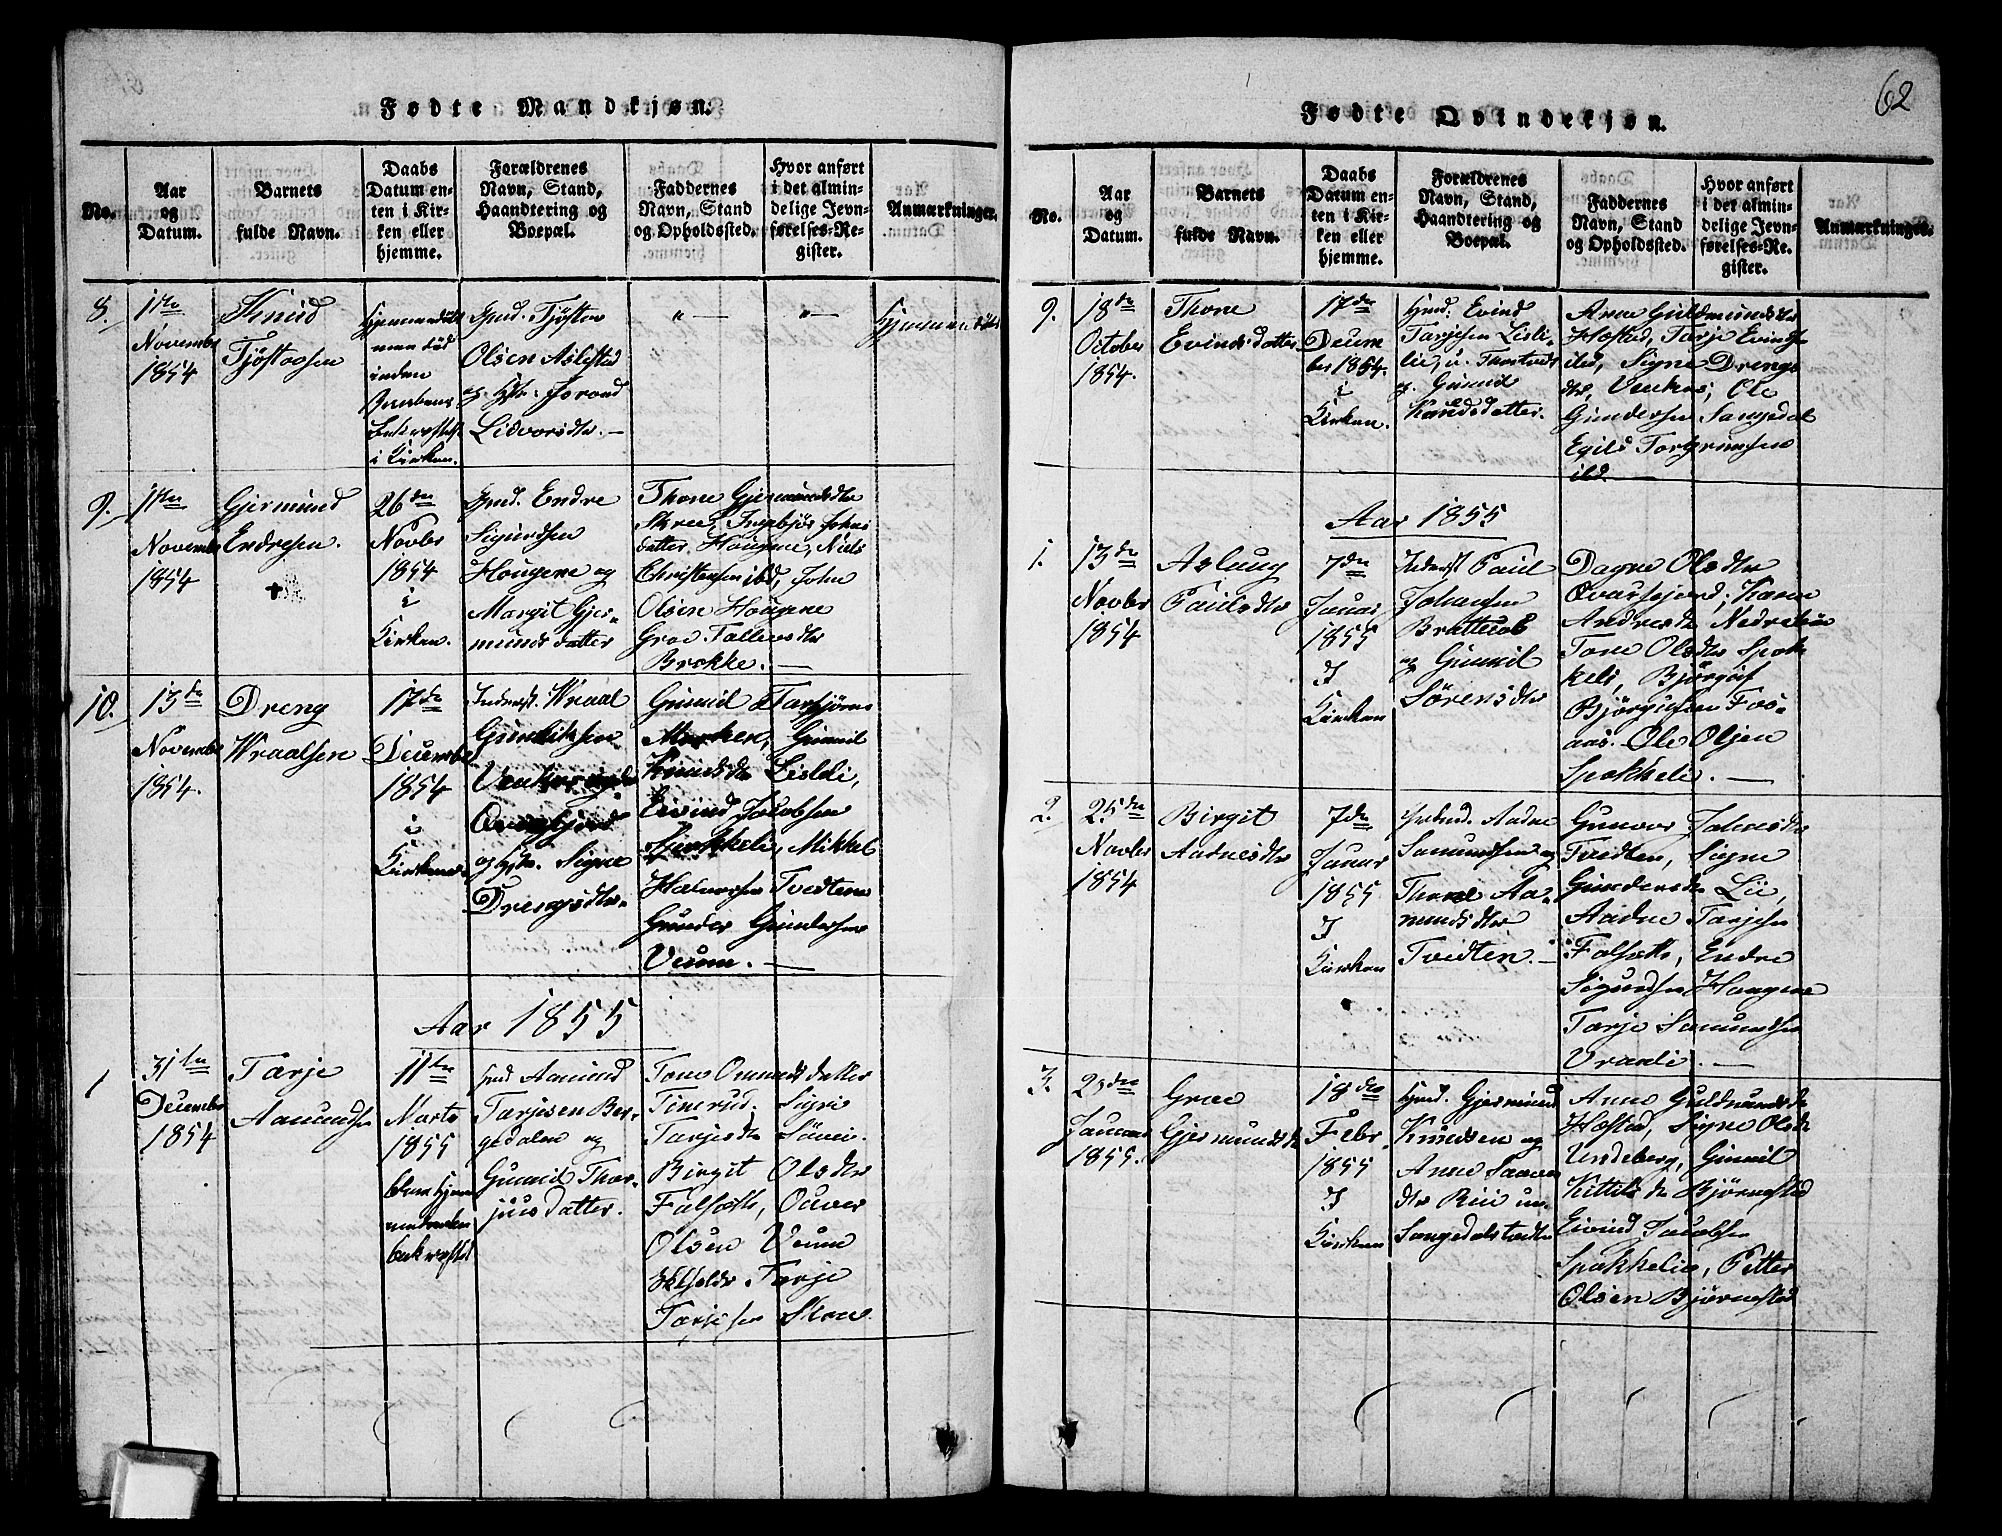 Fødte Mandkjøn.
No.
Aar
og
Datum.
Barnets
fulde Navn.
Daabs
Datum en-
ten i Kir-
ken eller
hjemme.
Forældrenes
Navn, Stand,
Haandtering og
Boepæl.
Faddernes
Navn, Stand
og Opholdssted.
Hvor anført
i det almin-
delige Jevn-
førelses-Re-
gister.
Anmærkninger.
8.
1ste
Novembr
1854
Knud
Tjøstolsen
inden
i Kirken.
Gmd. Tjøsten
Olsen Aslestad
og Hstr. Joraand
Lidvorsdtr. —
" —
" —
9.
11te
Novembr
1854
Gjermund
Endresen.
26de
Novbr
1854
i
Kirken.
Gmd. Endre
Sigurdsen
Hougene og
Margit Gjer-
mundsdatter
Thone Gjermundsdtr
Skree, Ingebjør Johns
datter Hougene, Niels
Christensen ibd, John
Olsen Hougene
Groe Tallevsdtr
Brokke. —
10.
13de
Novembr
1854.
Dreng
Wraalsen
17de
Decembr
1854
i
Kirken
Inderst. Wraal
Gunliksen
og Hstr. Signe
Drengsdtr.
Gunild Tarjørns
Knudsdtr Lislli,
Eivind Jacobsen
Spokkeli, Mikkel
Halvorsen Tvedtene
Gunder Gundersen
Veum. —
Aar 1855
1
31te
Decembr
1854
Tarje
Aamundsen
11te
Marts
1855
Gmd Aamund
Tarjesen Ber-
gedalen og
Gunild Thor-
juusdatter.
Tone Omundsdatter
Tinerud. Sigri
Tarjesdtr
Birgit Olsdtr
Falsætt, Ouver
Olsen Veum
Tarje
Tarjesen Skree.
62
Fødte Qvindekjøn.
No.
Aar
og
Datum.
Barnets
fulde Navn.
Daabs
Datum en-
ten i Kir-
ken eller
hjemme.
Forældrenes
Navn, Stand,
Haandtering og
Boepæl.
Faddernes
Navn, Stand
og Opholdssted.
Hvor anført
i det almin-
delige Jevn-
førelses-Re-
gister.
Anmærkninger.
9.
18de
October
1854.
Thone
Evindsdatter
17de
Decem
ber 1854.
i
Kirken.
Hmd. Evind
Tarjesen Lisli-
og Gunild
Knudsdatter.
Anne Guldmundsdtr
Høstad, Tarje Evindsen
ibd, Signe Drengs
dtr, Venkas, Ole
Gundersen Sangedal
Egild Torgrimsen
ibd. —
Aar 1855
1.
13de
Novbr
1854
Aslaug
Paulsdtr
7de
Januar
1855
I
Kirken
Inderst Paul
Johansen
Brattebek
og Gunnil
Sørensdtr
Dagne Olsdtr
Kvarsejord, Karen
Andresdtr Nedrebøe
Tone Olsdtr Spok
keli, Bjørguf
Bjørgufsen Fos-
aas. Ole Olsen
Spokkeli. —
2.
25de
Novbr
1854
Birgit
Aadnesdtr
7de
Januar
1855
I
Kirken
Gmd. Aadne
Samundsen og
Thone Aa-
mundsdtr
Tvedten. —
Gunvor Johnsdtr
Tvedten, Signe
Gundersdtr Lii,
Aadne Tarjesen
Falsætt, Endre
Sigurdsen Hougene
Tarje Samundsen
Vraalie —
3.
29de
Januar
1855.
Groe
Gjermundsdtr
18de
Febr
1855
I
Kirken
Hmd. Gjermund
Knudsen og
Anne Saave
dtr Riu un.
Anne Guldmundsdtr
Høstad, Signe Olsdtr
Undeberg, Gunnil
Kittilsdtr Bjørnestad
Eivind Jacobsen
Spokkelie, Petter
Olsen Bjørnestad